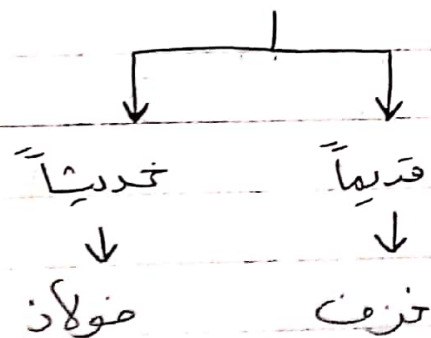 قديماً حديثاً
خزف فولاذ